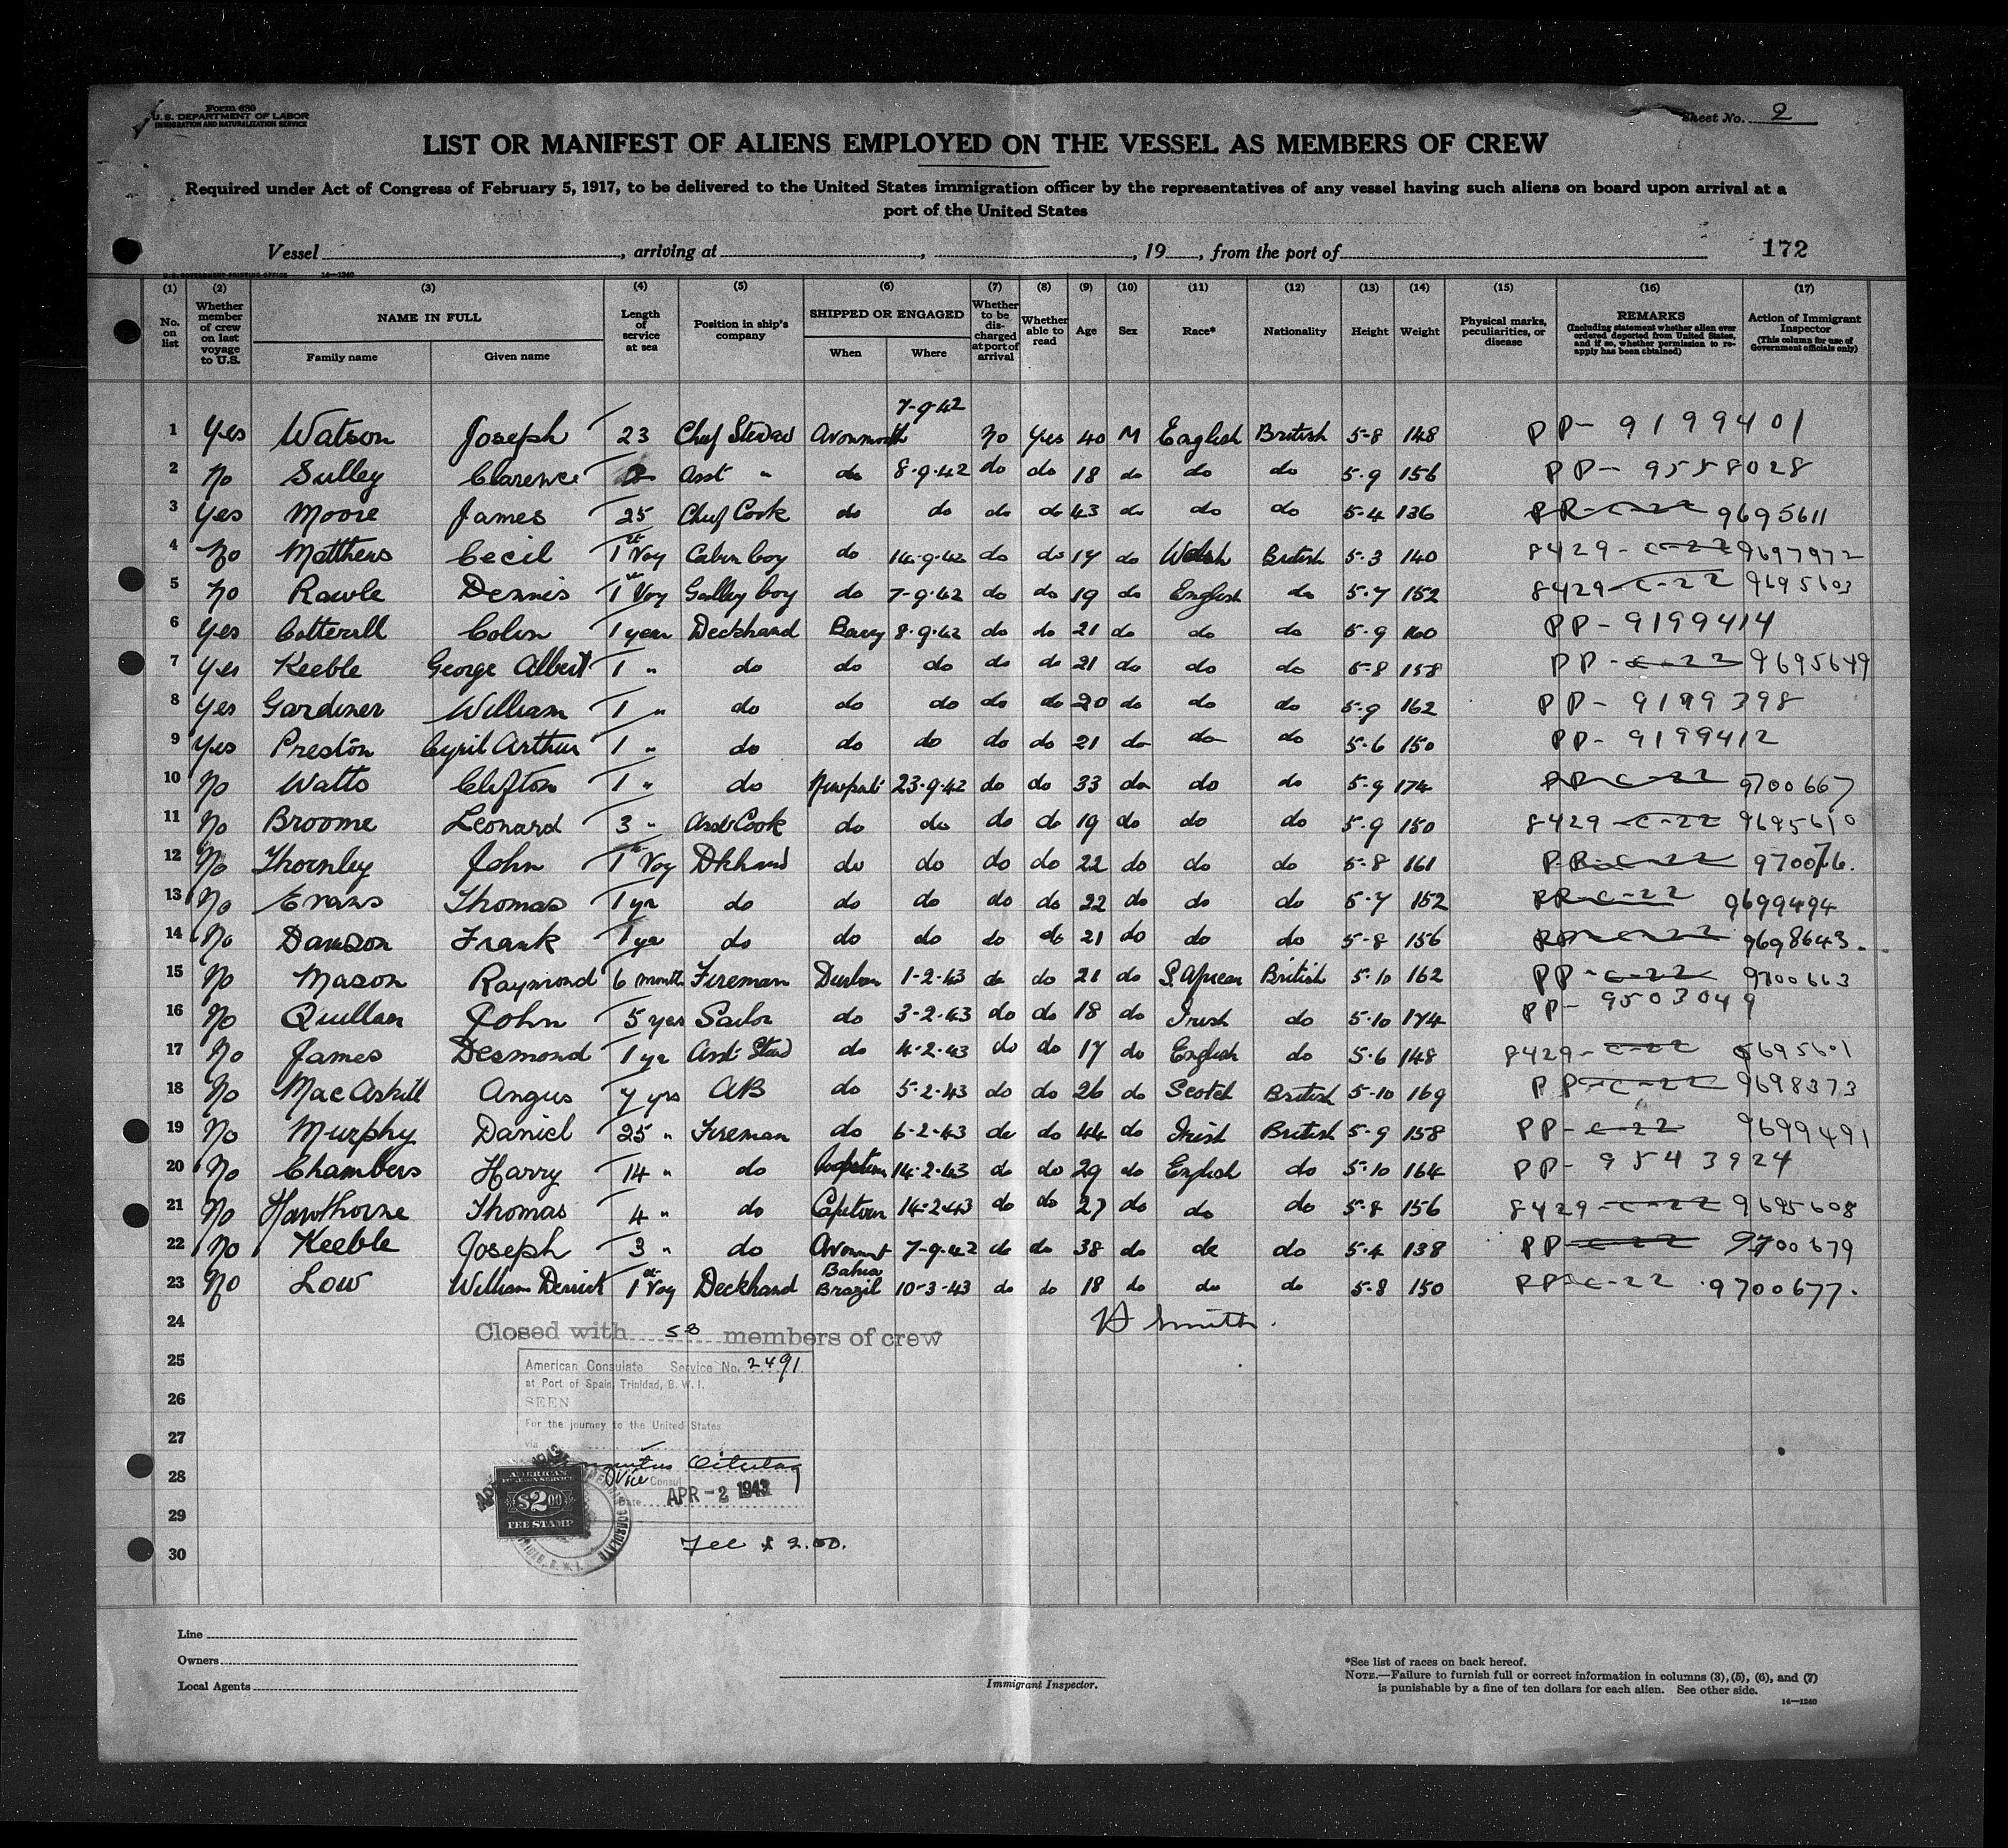 Form 680
U.S. DEPARTMENT OF LABOR
IMMIGRATION AND NATURALIZATION SERVICE
Sheet No. 2
LIST OR MANIFEST OF ALIENS EMPLOYED ON THE VESSEL AS MEMBERS OF CREW
Required under Act of Congress of February 5, 1917, to be delivered to the United States immigration officer by the representatives of any vessel having such aliens on board upon arrival at a
port of the United States
Vessel , arriving at , , 19 , from the port of 172
U. S. GOVERNMENT PRINTING OFFICE 14—1240
(1) No. on list
(2) Whether member of crew on last voyage to U.S.
(3) NAME IN FULL
Family name Given name
(4) Length of service at sea
(5) Position in ship's company
(6) SHIPPED OR ENGAGED
When Where
(7) Whether to be discharged at port of arrival
(8) Whether able to read
(9) Age
(10) Sex
(11) Race*
(12) Nationality
(13) Height
(14) Weight
(15) Physical marks, peculiarities, or disease
(16) REMARKS (Including statement whether alien ever ordered deported from United States, and if so, whether permission to reapply has been obtained)
(17) Action of Immigrant Inspector (This column for use of Government officials only)
7-9-42
1 Yes Watson Joseph 23 Avonmouth No Yes 40 M English British 5-8 148 PP- 9199401
2 No Sulley Clarence Asst " do 8-9-42 do do 18 do do do 5-9 156 PP- 9558028
3 Yes Moore James 25 Chef Cook do do do do 43 do do do 5-4 136 PP-C-22 9695611
4 No Matthews Cecil 1st Voy Cabin boy do 14-9-42 do do 17 do Welsh British 5-3 140 8429-C-22 9697972
5 No Rawle Dennis 1st Voy Galley boy do 7-9-42 do do 19 do English do 5-7 152 8429-C-22 9695603
6 Yes Cotterill Colin 1 year Deckhand Barry 8-9-42 do do 21 do do do 5-9 160 PP-9199414
7 Yes Keeble George Albert 1 " do do do do do 21 do do do 5-8 158 PP-C-22 9695649
8 Yes Gardiner William 1 " do do do do do 20 do do do 5-9 162 PP- 9199398
9 Yes Preston Cyril Arthur 1 " do do do do do 21 do do do 5-6 150 PP- 9199412
10 No Watts Clifton 1 " do Newport 23-9-42 do do 33 do do do 5-9 174 PP-C-22 9700667
11 No Broome Leonard 3 " Asst Cook do do do do 19 do do do 5-9 150 8429-C-22 9695610
12 No Thornley John 1st Voy Dkhand do do do do 22 do do do 5-8 161 PP-C-22
13 No Evans Thomas 1 yr do do do do do 22 do do do 5-7 152 PP-C-22 9699494
14 No Dawson Frank 1 yr do do do do do 21 do do do 5-8 156 PP-C-22 9698643.
15 No Mason Raymond 6 months Fireman Durban 1-2-43 do do 21 do S. African British 5-10 162 PP-C-22 9700663
16 No Quillan John 5 yrs Sailor do 3-2-43 do do 18 do Irish do 5-10 174 PP- 9503049
17 No James Desmond 1 yr Asst Stewd do 4-2-43 do do 17 do English do 5-6 148 8429-C-22 9695601
18 No MacAskill Angus 7 yrs AB do 5-2-43 do do 26 do Scotch British 5-10 169 PP-C-22 9698373
19 No Murphy Daniel 25 " Fireman do 6-2-43 do do 44 do Irish British 5-9 158 PP-C-22 9699491
20 No Chambers Harry 14 " do Capetown 14-2-43 do do 29 do English do 5-10 164 PP- 9543924
21 No Hawthorne Thomas 4 " do Capetown 14-2-43 do do 27 do do do 5-8 156 8429-C-22 9695608
22 No Keeble Joseph 3 " do Avonmt 7-9-42 do do 38 do do do 5-4 138 PP-C-22 9700679
23 No Low William Derrick 1st Voy Deckhand Bahia Brazil 10-3-43 do do 18 do do do 5-8 150 PP-C-22 9700677.
24 H Smith.
Closed with 53 members of crew
25
American Consulate Service No. 2491
at Port of Spain, Trinidad, B. W. I.
26
SEEN
For the journey to the United States
27
via
28
Vice Consul
AMERICAN FOREIGN SERVICE $2.00 FEE STAMP
Date APR -2 1943
29
Fee $ 2.00.
30
Line
Owners
Local Agents
Immigrant Inspector.
*See list of races on back hereof.
NOTE.—Failure to furnish full or correct information in columns (3), (5), (6), and (7)
is punishable by a fine of ten dollars for each alien. See other side.
14—1240